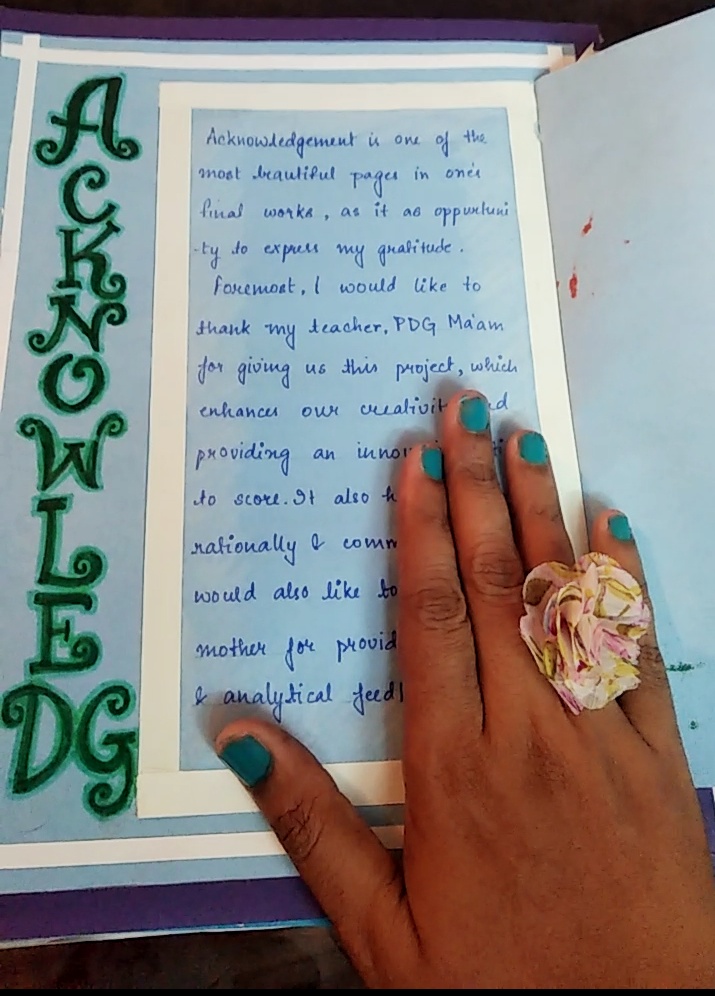 ACKNOWLEDG
Acknowledgement is one of the
most beautiful pages in one's
final works, as it as oppurtuni
-ty to express my gratitude.
Foremost, I would like to
thank my teacher, PDG Ma'am
for giving us this project, which
enhances our
providing an
to score. It also
rationally &
would also like to
mother for
& analytical